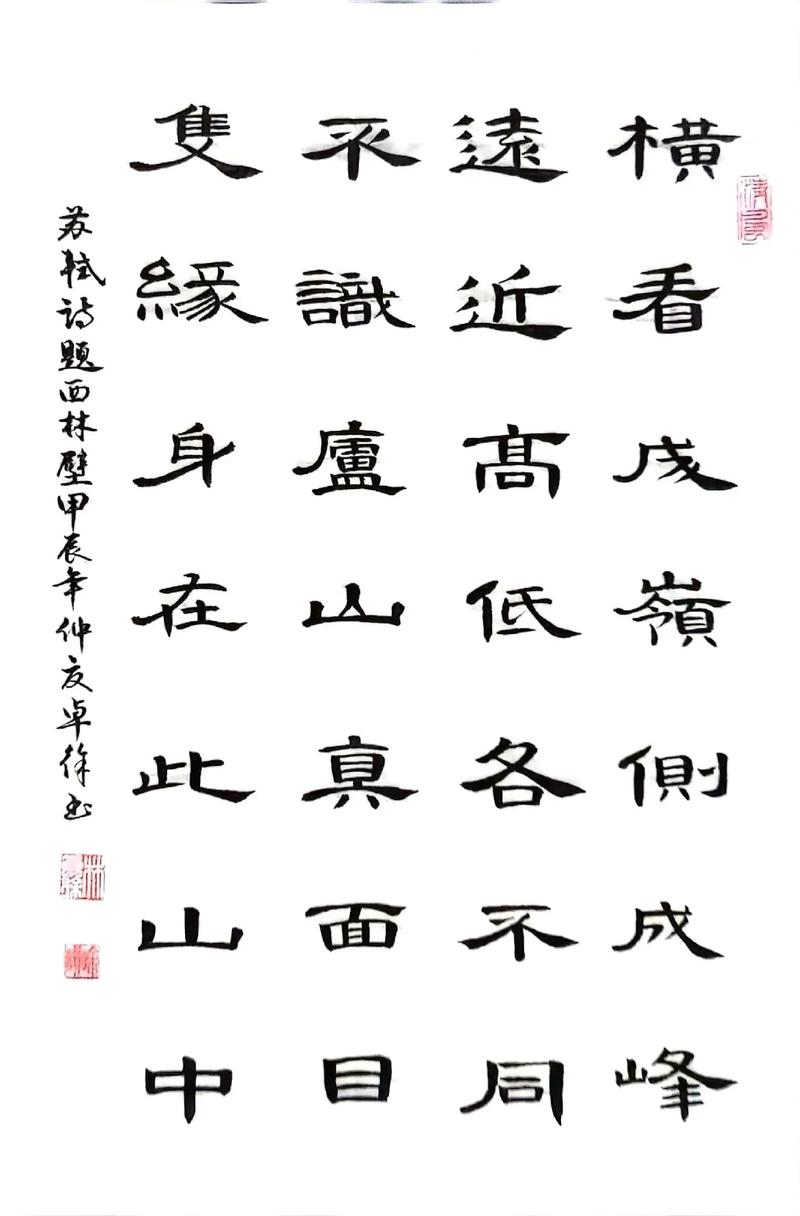 横看成嶺側成峰
遠近高低各不同
不識廬山真面目
隻緣身在此山中
苏軾詩題西林壁甲辰年仲夏卓徐书